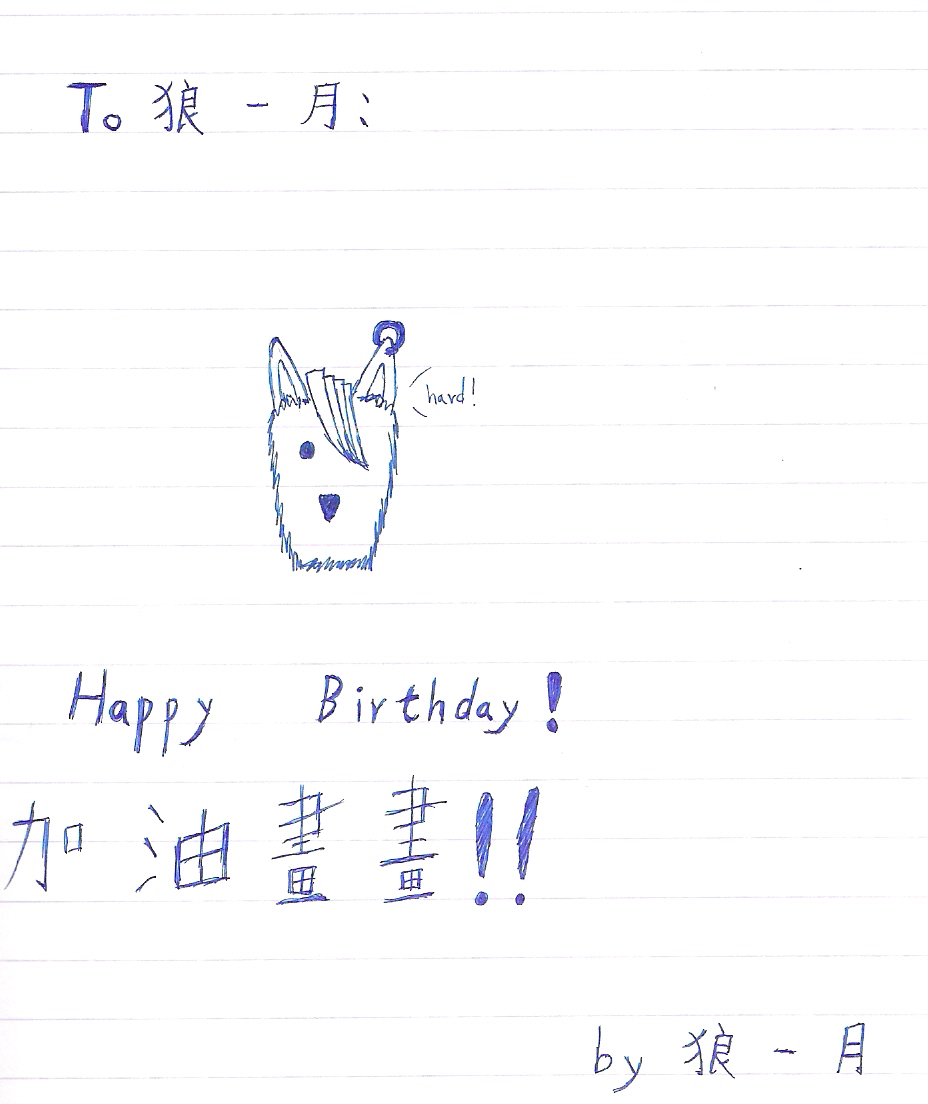 To 狼 一 月:
hard!
Happy Birthday!
加油畫畫!!
by 狼 一 月